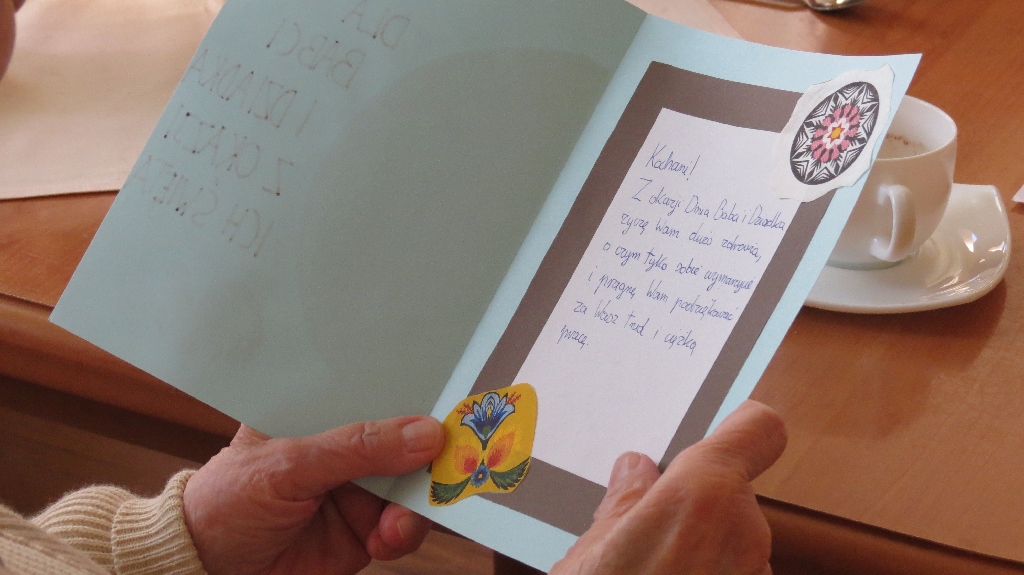 DLA
BABCI
I DZIADKA
Z OKAZJI
ICH ŚWIĘTA
Kochani!
Z okazji Dnia Baba i Dziadka
życzę Wam dużo zdrowia,
o czym tylko sobie wymarzycie
i pragnę Wam podziękować
za Wasz trud i ciężką
pracę.